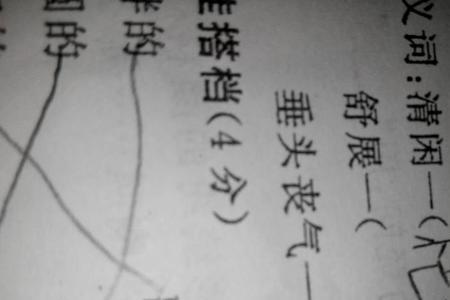 义词:清闲—(忙
舒展—(
垂头丧气—
搭档(4分)
的
的